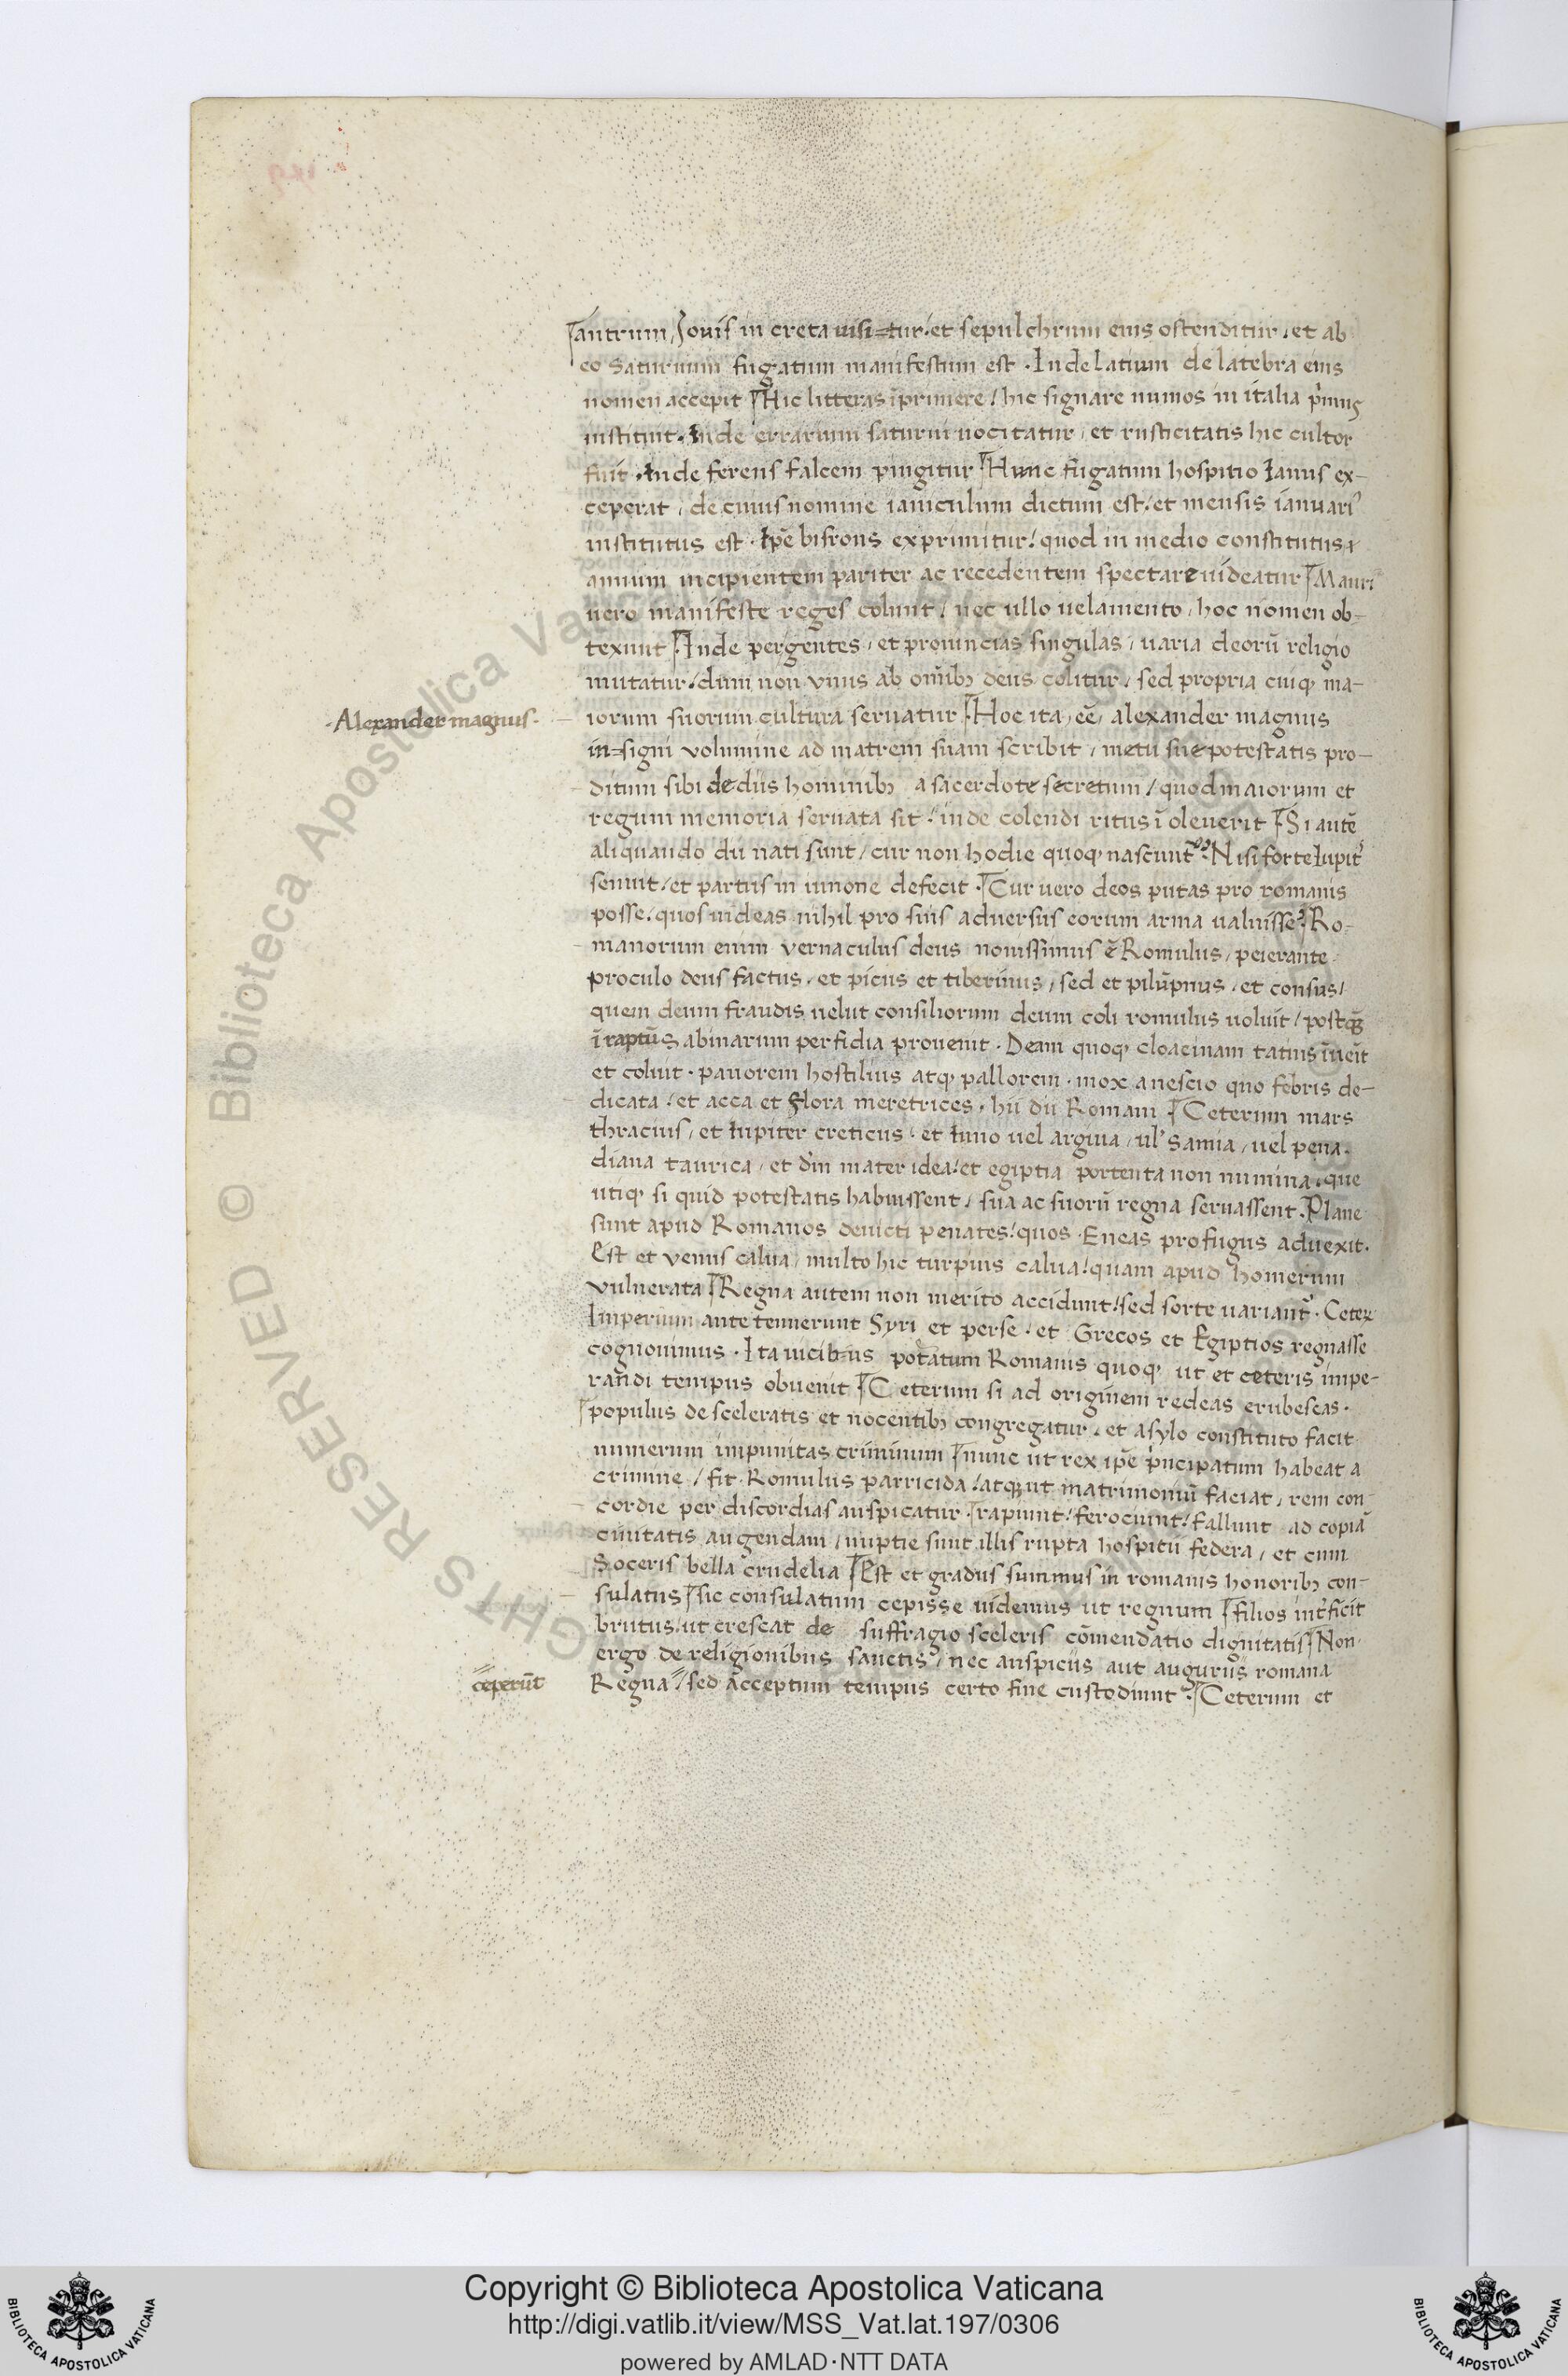 antrum Iovis in creta uisi=tur: et sepulchrum eius ostenditur. et ab
eo Saturnum fugatum manifestum est. Inde latium de latebra eius
nomen accepit Hic litteras īprimere / hic signare numos in italia p̓mus
instituit. Inde errarium saturni uocitatur, et rusticitatis hic cultor
fuit. Inde ferens falcem pingitur Hunc fugatum hospitio Ianus ex-
ceperat, de cuius nomine ianiculum dictum est: et mensis ianuari᾽
institutus est. Ip̄e bifrons exprimitur: quod in medio constitutus
annum incipientem pariter ac recedentem spectare uideatur Mauri
uero manifeste reges colunt / nec ullo uelamento, hoc nomen ob-
texunt Inde pergentes, et prouincias singulas, uaria deorū religio
mutatur: dum non vnus ab om̄ibꝫ deus colitur, sed propria cuiqꝫ ma-
·Alexander magnus·
iorum suorum cultura seruatur. Hoc ita, eē, alexander magnus
in=signi volumine ad matrem suam scribit, metu sue potestatis pro-
ditum sibi de diis hominibꝫ a sacerdote secretum / quod maiorum et
regum memoria seruata sit: inde colendi ritus īoleuerit Si autē
aliquando dii nati sunt, cur non hodie quoqꝫ nascunt᾽ Nisi forte Iupit̓
senuit: et partus in iunone defecit. Cur uero deos putas pro romanis
posse: quos uideas nihil pro suis aduersus eorum arma ualuisse? Ro-
manorum enim vernaculus deus nouissimus ē Romulus, peierante
proculo deus factus, et picus et tiberinus, sed et pilūpnus, et consus /
quem deum fraudis uelut consiliorum deum coli romulus uoluit / postqꝫ̄
ī raptū Sabinarum perfidia prouenit. Deam quoqꝫ cloacinam tatius īueīt
et coluit. pauorem hostilius atqꝫ pallorem. mox a nescio quo febris de-
dicata: et acca et flora meretrices. hii dii Romani Ceterum mars
thracius, et Iupiter creticus. et Iuno uel argiua, ul̓ Samia, uel pena.
diana taurica, et d̓m mater idea: et egiptia portenta non numina. que
utiqꝫ si quid potestatis habuissent, sua ac suorū regna seruassent. Plane
sunt apud Romanos deuicti penates: quos Eneas profugus aduexit.
Est et venus calua, multo hic turpius calua: quam apud homerum
vulnerata Regna autem non merito accidunt: sed sorte uariant᾽. Ceteꝝ
Imperium ante tenuerunt Syri et perse. et Grecos et Egiptios regnasse
cognouimus. Ita uicib=us potātum Romanis quoqꝫ ut et ceteris impe-
randi tempus obuenit Ceterum si ad originem redeas erubescas.
populus de sceleratis et nocentibꝫ congregatur. et asylo constituto facit
numerum impunitas criminum nunc ut rex ip̄e p̓ncipatum habeat a
crimine / fit Romulus parricida: atqꝫ ut matrimoniū faciat, rem con-
cordie per discordias auspicatur. rapiunt: ferociunt: fallunt ad copiā
ciuitatis augendam, nuptie sunt illis rupta hospitii federa, et cum
Soceris bella crudelia Est et gradus summus in romanis honoribꝫ con-
sulatus sic consulatum cepisse uidemus ut regnum filios int̓ficit
brutus, ut crescat de suffragio sceleris cōmendatio dignitatis Non
ergo de religionibus sanctis, nec auspiciis aut auguriis romana
ceperūt
Regna: sed acceptum tempus certo fine custodiunt. Ceterum et
Copyright © Biblioteca Apostolica Vaticana
http://digi.vatlib.it/view/MSS_Vat.lat.197/0306
powered by AMLAD·NTT DATA
BIBLIOTECA APOSTOLICA VATICANA
BIBLIOTECA APOSTOLICA VATICANA